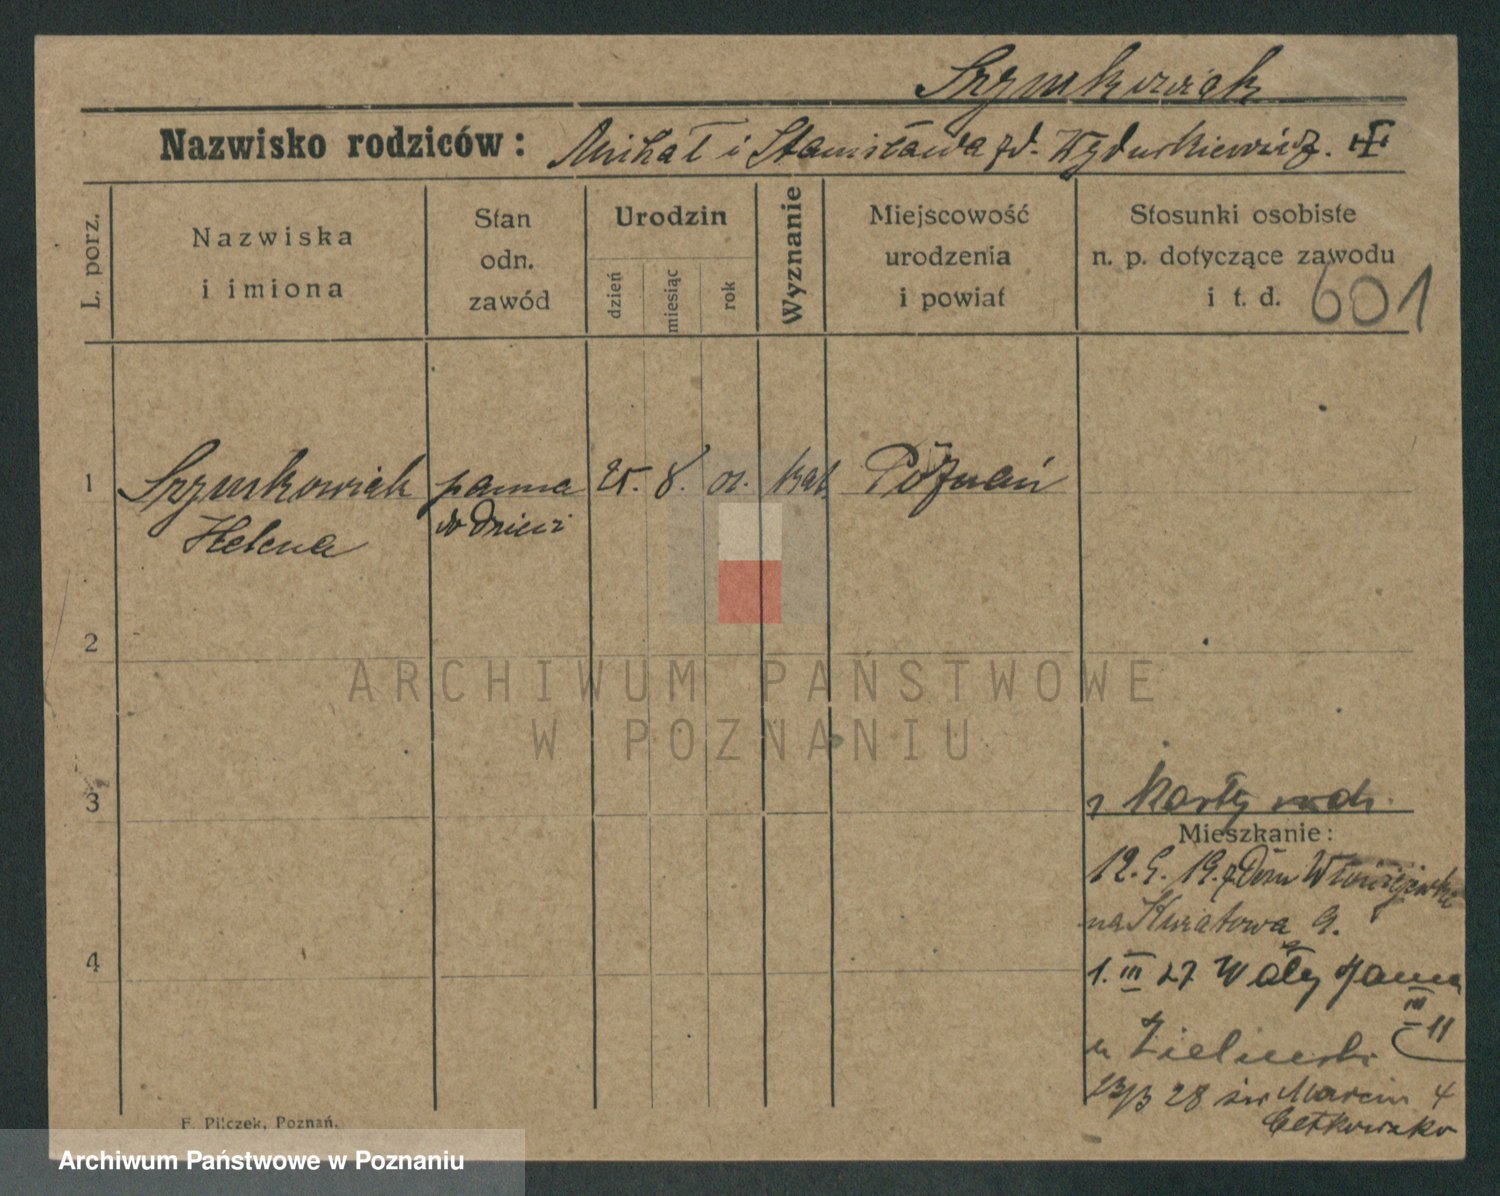 Szymkowiak
Nazwisko rodziców: Michał i Stanisława zd. Wyduskiewicz.
L. porz.
Nazwiska
i imiona
Stan
odn.
zawód
Urodzin
dzień
miesiąc
rok
Wyznanie
Miejscowość
urodzenia
i powiat
Stosunki osobiste
n. p. dotyczące zawodu
i t. d. 601
1
Szymkowiak panna 25. 8. 01. kat. Poznań
Helena do dzieci
2
ARCHIWUM PAŃSTWOWE
W POZNANIU
z karty rodz.
3
Mieszkanie:
12. 9. 19. z Dom
na Kwiatowa 9.
4
1. III 27 Wały Jana
III
11
u Zielinski
23/3 28 św Marcin 4
F. Pilczek, Poznań.
Archiwum Państwowe w Poznaniu